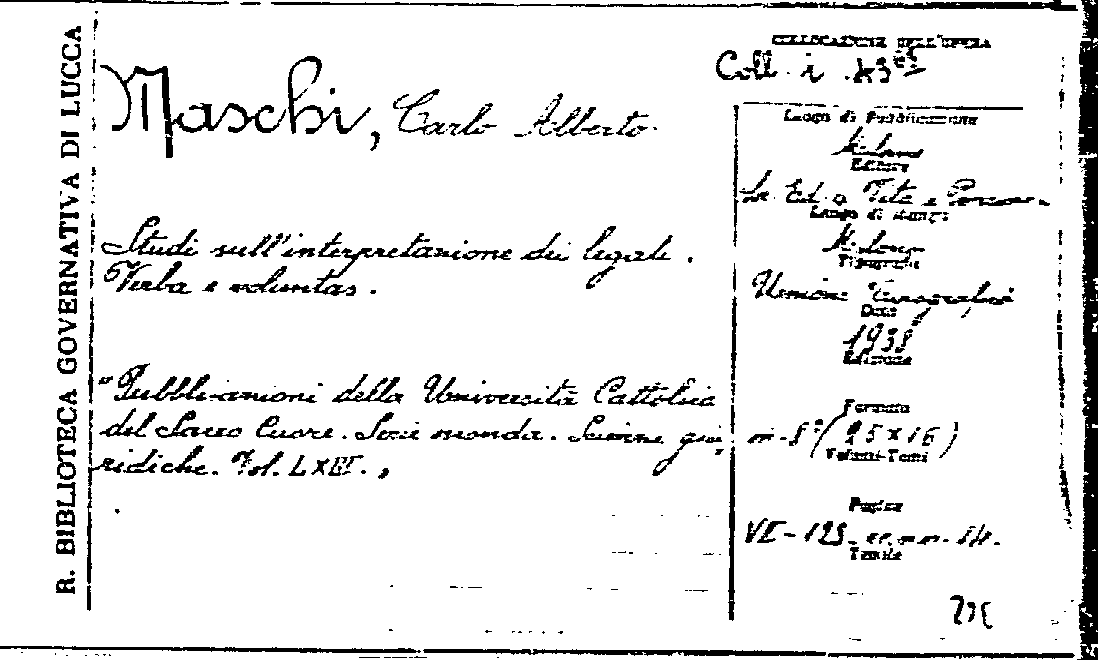 R. BIBLIOTECA GOVERNATIVA DI LUCCA
Maschi, Carlo Alberto.
Studi sull'interpretazione dei legati.
Verba e voluntas.
"Pubblicazioni della Università Cattolica
del Sacro Cuore. Serie seconda. Scienze giu,
ridiche. Vol. LXIII.,
COLLOCAZIONE DELL'OPERA
Coll. i
Luogo di Pubblicazione
Milano
Editore
Ed. Vita e Pensiero
Luogo di stampa
Milano
Tipografia
Unione Tipografica
Data
1938
Edizione
Formato
in-8° (25 x 16)
Volumi-Tomi
Pagine
VI - 125
Tavole